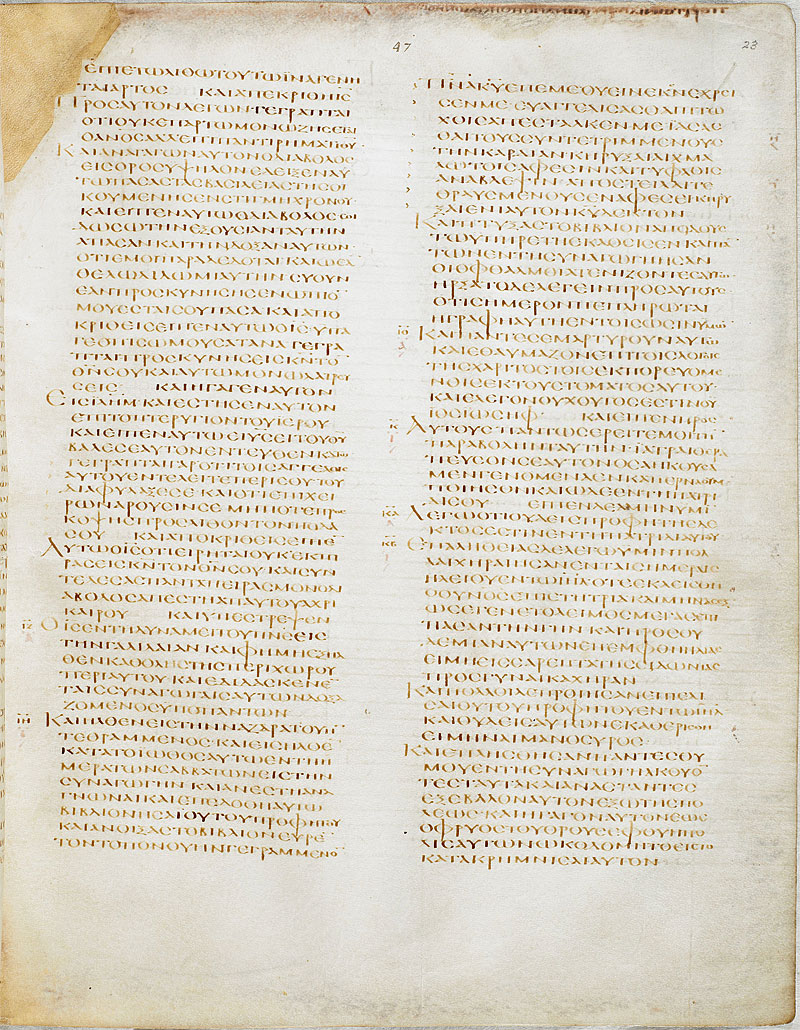 ΕΙΠΕΤΩΛΙΘΩΤΟΥΤΩΪΝΑΓΕΝΗ
ΤΑΙΑΡΤΟϹ ΚΑΙΑΠΕΚΡΙΘΗΙϹ
ΠΡΟϹΑΥΤΟΝΛΕΓΩΝΓΕΓΡΑΠΤΑΙ
ΟΤΙΟΥΚΕΠΑΡΤΩΜΟΝΩΖΗϹΕΤΑΙ
ΟΑΝΟϹΑΛΛΕΠΙΠΑΝΤΙΡΗΜΑΤΙΘΥ
ΚΑΙΑΝΑΓΑΓΩΝΑΥΤΟΝΟΔΙΑΒΟΛΟϹ
ΕΙϹΟΡΟϹΥΨΗΛΟΝΕΔΕΙΞΕΝΑΥ
ΤΩΠΑϹΑϹΤΑϹΒΑϹΙΛΕΙΑϹΤΗϹΟΙ
ΚΟΥΜΕΝΗϹΕΝϹΤΙΓΜΗΧΡΟΝΟΥ
ΚΑΙΕΙΠΕΝΑΥΤΩΟΔΙΑΒΟΛΟϹϹΟΙ
ΔΩϹΩΤΗΝΕΞΟΥϹΙΑΝΤΑΥΤΗΝ
ΑΠΑϹΑΝΚΑΙΤΗΝΔΟΞΑΝΑΥΤΩΝ
ΟΤΙΕΜΟΙΠΑΡΑΔΕΔΟΤΑΙΚΑΙΩΕΑ
ΘΕΛΩΔΙΔΩΜΙΑΥΤΗΝϹΥΟΥΝ
ΕΑΝΠΡΟϹΚΥΝΗϹΗϹΕΝΩΠΙΟ
ΜΟΥΕϹΤΑΙϹΟΥΠΑϹΑΚΑΙΑΠΟ
ΚΡΙΘΕΙϹΕΙΠΕΝΑΥΤΩΟΙϹΥΠΑ
ΓΕΟΠΙϹΩΜΟΥϹΑΤΑΝΑΓΕΓΡΑ
ΠΤΑΙΠΡΟϹΚΥΝΗϹΕΙϹΚΝΤΟ
ΘΝϹΟΥΚΑΙΑΥΤΩΜΟΝΩΛΑΤΡΕΥ
ϹΕΙϹ ΚΑΙΗΓΑΓΕΝΑΥΤΟΝ
ΕΙϹΙΛΗΜ·ΚΑΙΕϹΤΗϹΕΝΑΥΤΟΝ
ΕΠΙΤΟΠΤΕΡΥΓΙΟΝΤΟΥΙΕΡΟΥ
ΚΑΙΕΙΠΕΝΑΥΤΩΕΙΥϹΕΙΤΟΥΘΥ
ΒΑΛΕϹΕΑΥΤΟΝΕΝΤΕΥΘΕΝΚΑΤΩ
ΓΕΓΡΑΠΤΑΙΓΑΡΟΤΙΤΟΙϹΑΓΓΕΛΟΙϹ
ΑΥΤΟΥΕΝΤΕΛΕΙΤΑΙΠΕΡΙϹΟΥΤΟΥ
ΔΙΑΦΥΛΑΞΕϹΕΚΑΙΟΤΙΕΠΙΧΕΙ
ΡΩΝΑΡΟΥϹΙΝϹΕΜΗΠΟΤΕΠΡΟϹ
ΚΟΨΗϹΠΡΟϹΛΙΘΟΝΤΟΝΠΟΔΑ
ϹΟΥ ΚΑΙΑΠΟΚΡΙΘΕΙϹΕΙΠΕ
ΑΥΤΩΟΙϹΟΤΙΕΙΡΗΤΑΙΟΥΚΕΚΠΙ
ΡΑϹΕΙϹΚΝΤΟΝΘΝϹΟΥΚΑΙϹΥΝ
ΤΕΛΕϹΑϹΠΑΝΤΑΠΕΙΡΑϹΜΟΝΟΔΙ
ΑΒΟΛΟϹΑΠΕϹΤΗΑΠΑΥΤΟΥΑΧΡΙ
ΚΑΙΡΟΥ ΚΑΙΥΠΕϹΤΡΕΨΕΝ
ΟΙϹΕΝΤΗΔΥΝΑΜΕΙΤΟΥΠΝϹΕΙϹ
ΤΗΝΓΑΛΙΛΑΙΑΝΚΑΙΦΗΜΗΕΞΗΛ
ΘΕΝΚΑΘΟΛΗϹΤΗϹΠΕΡΙΧΩΡΟΥ
ΠΕΡΙΑΥΤΟΥΚΑΙΕΔΙΔΑϹΚΕΝΕ
ΤΑΙϹϹΥΝΑΓΩΓΑΙϹΑΥΤΩΝΔΟΞΑ
ΖΟΜΕΝΟϹΥΠΟΠΑΝΤΩΝ
ΚΑΙΗΛΘΕΝΕΙϹΤΗΝΝΑΖΑΡΑΤΟΥΗΝ
ΤΕΘΡΑΜΜΕΝΟϹΚΑΙΕΙϹΗΛΘΕ
ΚΑΤΑΤΟΕΙΩΘΟϹΑΥΤΩΕΝΤΗΗ
ΜΕΡΑΤΩΝϹΑΒΒΑΤΩΝΕΙϹΤΗΝ
ϹΥΝΑΓΩΓΗΝΚΑΙΑΝΕϹΤΗΑΝΑ
ΓΝΩΝΑΙΚΑΙΕΠΕΔΟΘΗΑΥΤΩ
ΒΙΒΛΙΟΝΗϹΑΪΟΥΤΟΥΠΡΟΦΗΤΟΥ
ΚΑΙΑΝΟΙΞΑϹΤΟΒΙΒΛΙΟΝΕΥΡΕ
ΤΟΝΤΟΠΟΝΟΥΗΝΓΕΓΡΑΜΜΕΝΟ
ΠΝΑΚΥΕΠΕΜΕΟΥΕΙΝΕΚΕΝΕΧΡΕΙ
ϹΕΝΜΕΕΥΑΓΓΕΛΙϹΑϹΘΑΙΠΤΩ
ΧΟΙϹΑΠΕϹΤΑΛΚΕΝΜΕΪΑϹΑϹ
ΘΑΙΤΟΥϹϹΥΝΤΕΤΡΙΜΜΕΝΟΥϹ
ΤΗΝΚΑΡΔΙΑΝΚΗΡΥΞΑΙΑΙΧΜΑ
ΛΩΤΟΙϹΑΦΕϹΙΝΚΑΙΤΥΦΛΟΙϹ
ΑΝΑΒΛΕΨΙΝΑΠΟϹΤΕΙΛΑΙΤΕ
ΘΡΑΥϹΜΕΝΟΥϹΕΝΑΦΕϹΕΙΚΗΡΥ
ΞΑΙΕΝΙΑΥΤΟΝΚΥΔΕΚΤΟΝ
ΚΑΙΠΤΥΞΑϹΤΟΒΙΒΛΙΟΝΑΠΟΔΟΥϹ
ΤΩΥΠΗΡΕΤΗΕΚΑΘΙϹΕΝΚΑΙΠΑ
ΤΩΝΕΝΤΗϹΥΝΑΓΩΓΗΗϹΑΝ
ΟΙΟΦΘΑΛΜΟΙΑΤΕΝΙΖΟΝΤΕϹΑΥΤΩ
ΗΡΞΑΤΟΔΕΛΕΓΕΙΝΠΡΟϹΑΥΤΟΥϹ
ΟΤΙϹΗΜΕΡΟΝΠΕΠΛΗΡΩΤΑΙ
ΗΓΡΑΦΗΑΥΤΗΕΝΤΟΙϹΩϹΙΝΥΜΩΝ
ΚΑΙΠΑΝΤΕϹΕΜΑΡΤΥΡΟΥΝΑΥΤΩ
ΚΑΙΕΘΑΥΜΑΖΟΝΕΠΙΤΟΙϹΛΟΓΟΙϹ
ΤΗϹΧΑΡΙΤΟϹΤΟΙϹΕΚΠΟΡΕΥΟΜΕ
ΝΟΙϹΕΚΤΟΥϹΤΟΜΑΤΟϹΑΥΤΟΥ·
ΚΑΙΕΛΕΓΟΝΟΥΧΟΥΤΟϹΕϹΤΙΝΟΥ
ΙΟϹΙΩϹΗΦ· ΚΑΙΕΙΠΕΝΠΡΟϹ
ΑΥΤΟΥϹΠΑΝΤΩϹΕΡΕΙΤΕΜΟΙΤΗ
ΠΑΡΑΒΟΛΗΝΤΑΥΤΗΝΪΑΤΡΑΙΘΕΡΑ
ΠΕΥϹΟΝϹΕΑΥΤΟΝΟϹΑΗΚΟΥϹΑ
ΜΕΝΓΕΝΟΜΕΝΑΕΝΚΑΠΕΡΝΑΟΥΜ
ΠΟΙΗϹΟΝΚΑΙΩΔΕΕΝΤΗΠΑΤΡΙ
ΔΙϹΟΥ ΕΙΠΕΝΔΕΑΜΗΝΥΜΙ
ΛΕΓΩΟΤΙΟΥΔΕΙϹΠΡΟΦΗΤΗϹΔΕ
ΚΤΟϹΕϹΤΙΝΕΝΤΗΠΑΤΡΙΔΙΑΥΤΟΥ
ΕΠΑΛΗΘΕΙΑϹΔΕΛΕΓΩΥΜΙΝΠΟΛ
ΛΑΙΧΗΡΑΙΗϹΑΝΕΝΤΑΙϹΗΜΕΡΑΙϹ
ΗΛΕΙΟΥΕΝΤΩΙΗΛΟΤΕΕΚΛΕΙϹΘΗ
ΟΟΥΝΟϹΕΠΙΕΤΗΤΡΙΑΚΑΙΜΗΝΑϹΕΞ
ΩϹΕΓΕΝΕΤΟΛΕΙΜΟϹΜΕΓΑϹΕΠΙ
ΠΑϹΑΝΤΗΝΓΗΝΚΑΙΠΡΟϹΟΥ
ΔΕΜΙΑΝΑΥΤΩΝΕΠΕΜΦΘΗΗΛΙΑϹ
ΕΙΜΗΕΙϹϹΑΡΕΠΤΑΤΗϹϹΙΔΩΝΙΑϹ
ΠΡΟϹΓΥΝΑΙΚΑΧΗΡΑΝ
ΚΑΙΠΟΛΛΟΙΛΕΠΡΟΙΗϹΑΝΕΠΙΕΛΙ
ϹΑΙΟΥΤΟΥΠΡΟΦΗΤΟΥΕΝΤΩΙΗΛ
ΚΑΙΟΥΔΕΙϹΑΥΤΩΝΕΚΑΘΕΡΙϹΘΗ
ΕΙΜΗΝΑΙΜΑΝΟϹΥΡΟϹ
ΚΑΙΕΠΛΗϹΘΗϹΑΝΠΑΝΤΕϹΘΥ
ΜΟΥΕΝΤΗϹΥΝΑΓΩΓΗΑΚΟΥΟ
ΤΕϹΤΑΥΤΑΚΑΙΑΝΑϹΤΑΝΤΕϹ
ΕΞΕΒΑΛΟΝΑΥΤΟΝΕΞΩΤΗϹΠΟ
ΛΕΩϹΚΑΙΗΓΑΓΟΝΑΥΤΟΝΕΩϹ
ΟΦΡΥΟϹΤΟΥΟΡΟΥϹΕΦΟΥΗΠΟ
ΛΙϹΑΥΤΩΝΩΚΟΔΟΜΗΤΟΕΙϹΤΟ
ΚΑΤΑΚΡΗΜΝΙϹΑΙΑΥΤΟΝ
47
23
ΙΖ
ΙΗ
ΙΘ
Κ
ΚΑ
ΚΒ